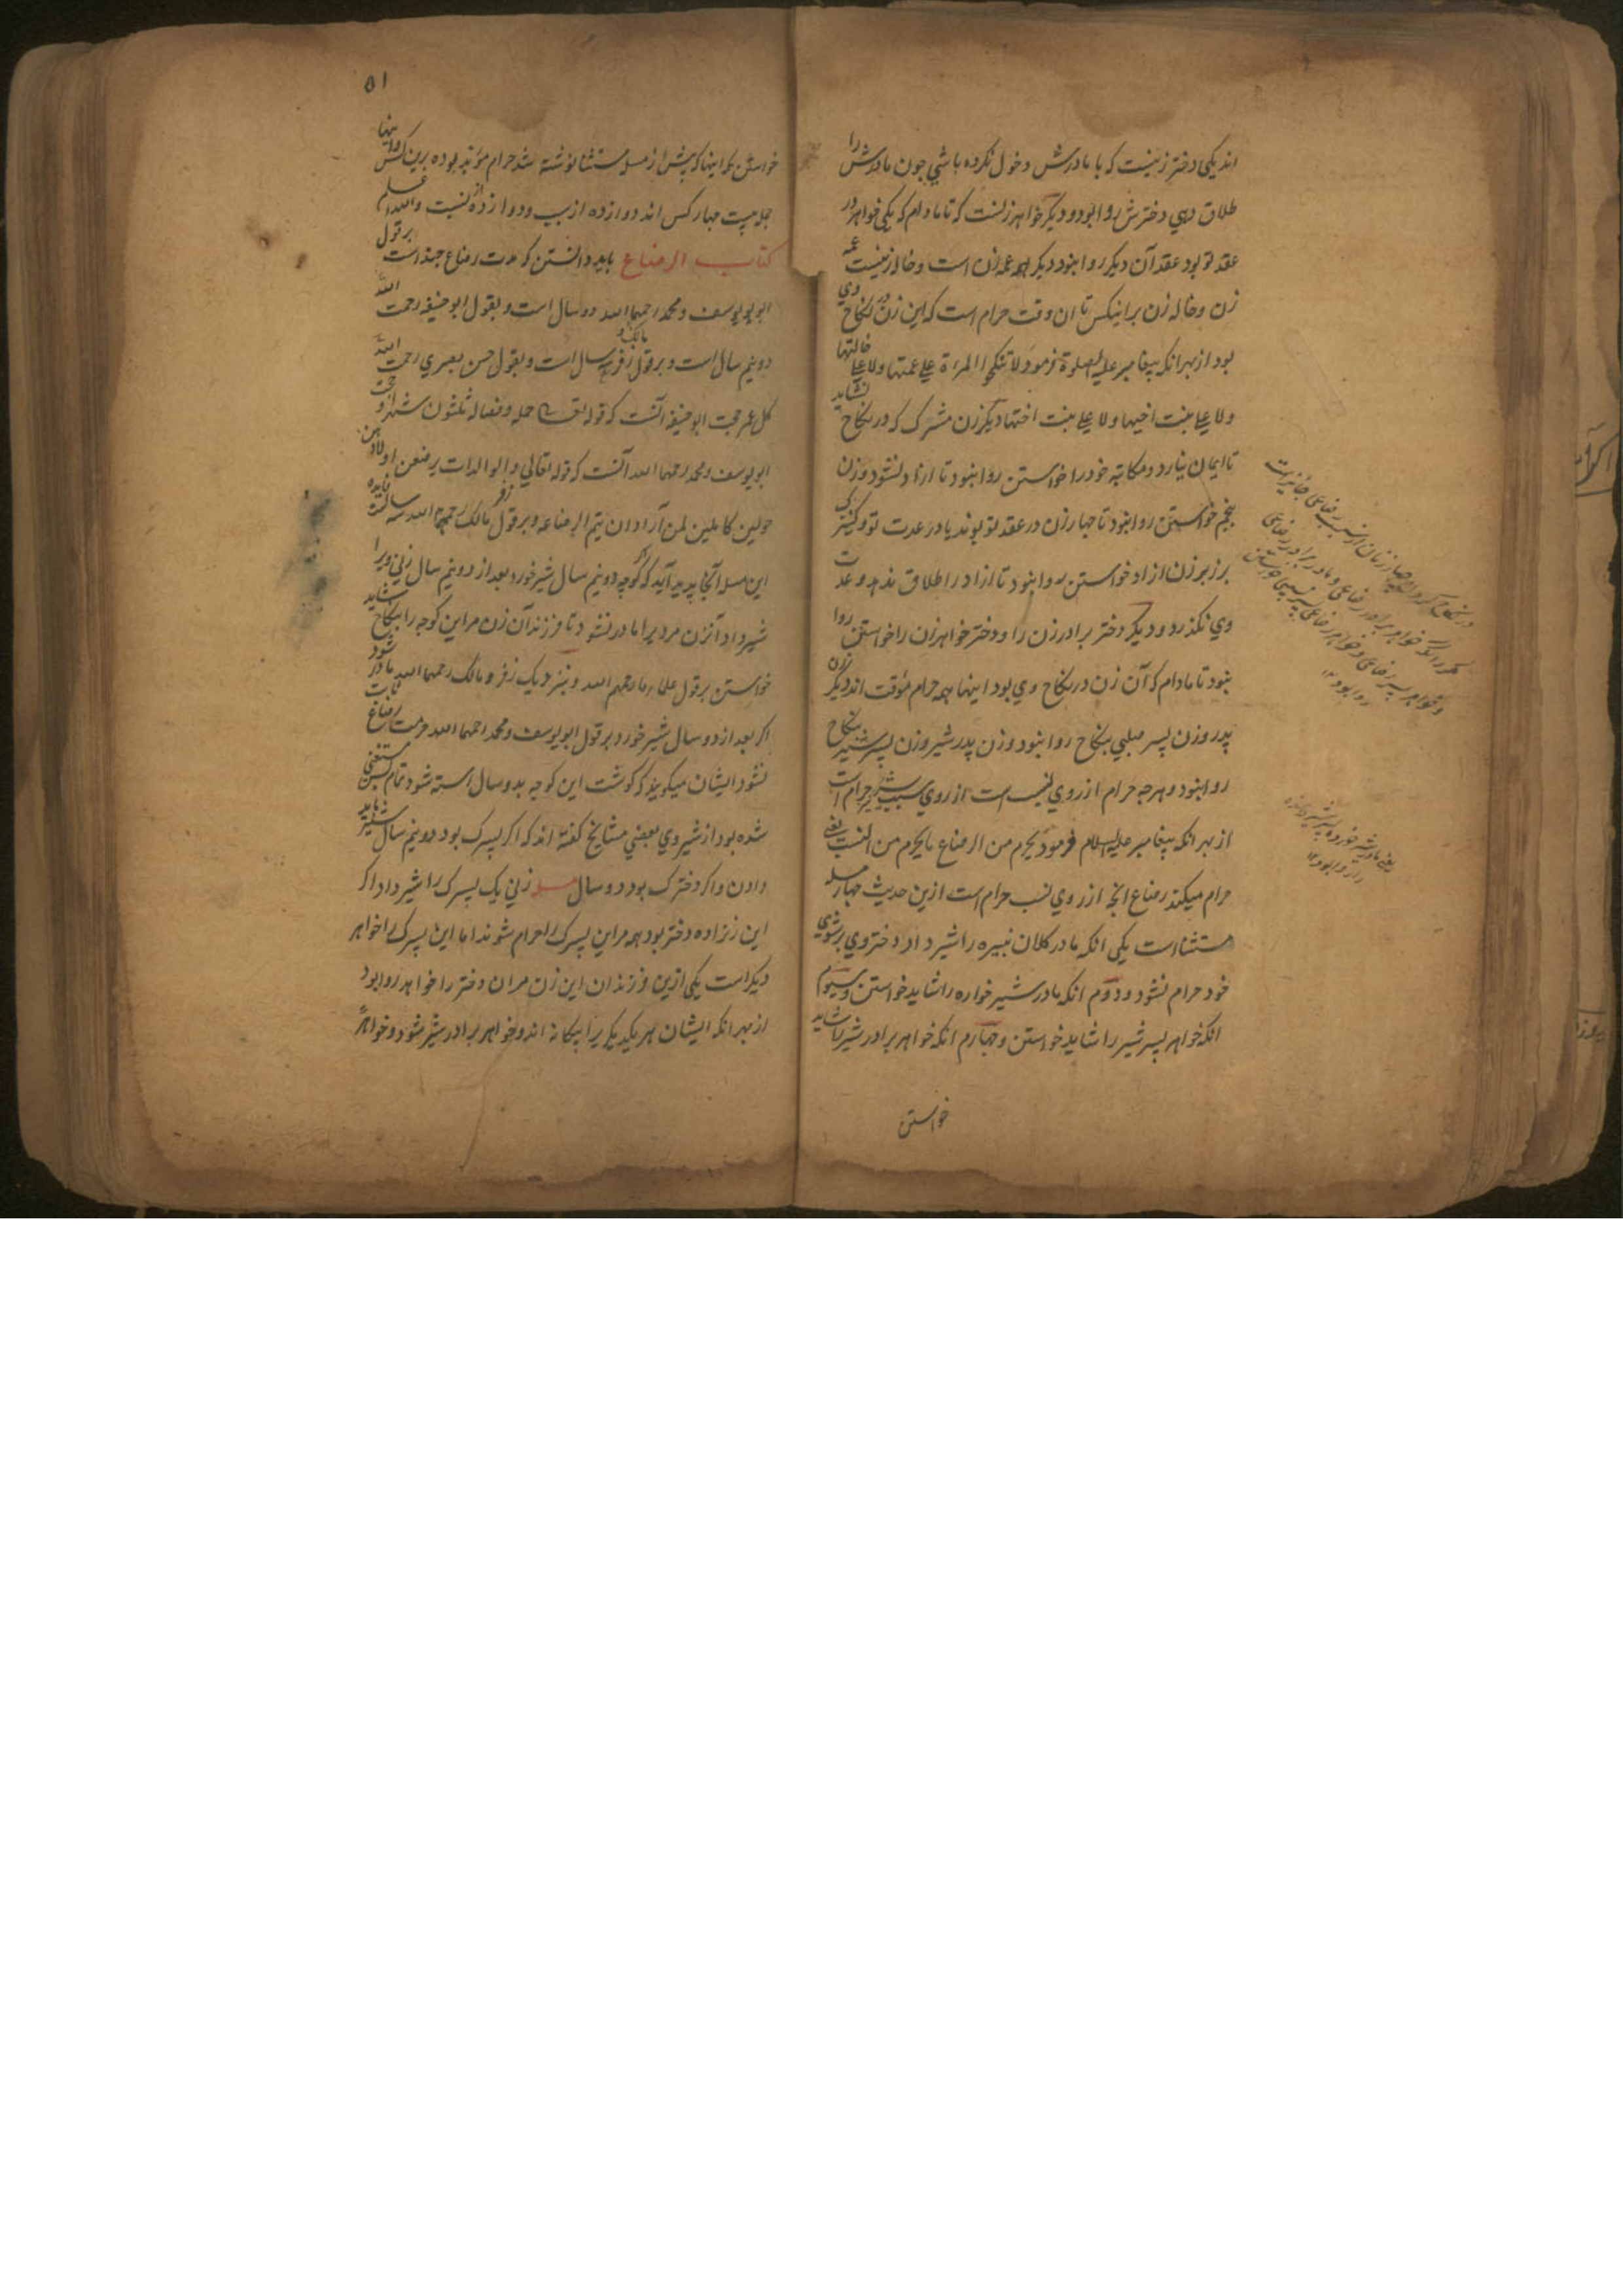 اند یکی دختر زنیست که با مادرش دخول نکرده باشی چون مادرش را
طلاق دهی دخترش روا بود و دیگر خواهر زنست که تا مادام که یکی خواهر در
عقد تو بود عقد آن دیگر روا نبود دیگر همه عمه زن است و خاله زنیست عمه
زن و خاله زن برانیکس تا ان وقت حرام است که این زن در نکاح وی
بود از بهر انکه پیغامبر علیه الصلوة فرمود لا تنکحوا المراة علی عمتها ولا علی خالتها
ولا علی بنت اخیها ولا علی بنت اختها دیگر زن مشرک که در نکاح نشاید
تا ایمان نیارد و مکاتبه خود را خواستن روا نبود تا ازاد نشود و زن
پنجم خواستن روا نبود تا چهار زن در عقد تو بوند یا در عدت تو و کنیزکی
بر زبر زن ازاد خواستن روا نبود تا ازاد را طلاق ندهد و عدت
وی نکذرد و دیگر دختر برادر زن را و دختر خواهر زن را خواستن روا
نبود تا مادام که آن زن در نکاح وی بود اینها همه حرام مؤقت اند دیگر زن
پدر و زن پسر صلبی بنکاح روا نبود و زن پدر شیر و زن پسر شیر بنکاح
روا نبود و هرچه حرام از روی نسب است از روی سبب شیر حرام است
از بهر انکه پیغامبر علیه السلام فرمود یحرم من الرضاع ما یحرم من النسب یعنی
حرام میکند رضاع انچه از روی نسب حرام است ازین حدیث چهار مسله
مستثنا است یکی انکه مادر کلان نبیره را شیر داد دختر وی بر شوی
خود حرام نشود و دوم انکه مادر شیر خواره را شاید خواستن و سیوم
انکه خواهر پسر شیر را شاید خواستن و چهارم انکه خواهر برادر شیر را شاید
خواستن
روا بود ۱۲
۵۱
خواستن مر اینها که پیش از مسله مستثنا نوشته شد حرام مؤبد بوده برین کس و اینها
جمله بیست چهار کس اند دوازده از سبب و دوازده از نسبت والله اعلم
کتاب الرضاع باید دانستن که مدت رضاع چند است بر قول
ابو یوسف و محمد رحمهما الله دو سال است و بقول ابو حنیفه رحمت الله
دو نیم سال است و بر قول زفر سه سال است و بقول حسن بصری رحمت الله
کل عمر حجت ابو حنیفه آنست که قوله تعالی حمله و فصاله ثلثون شهرا و حجت
ابو یوسف و محمد رحمهما الله آنست که قوله تعالی والوالدات یرضعن اولادهن
حولین کاملین لمن آراد ان یتم الرضاعه و بر قول زفر مالک رحمهما الله سه سالست فایده
این مسله آنجا پدید آید که اگر کوچه دو نیم سال شیر خورد بعد از دو نیم سال زنی ویرا
شیر داد آنزن مر ویرا مادر نشود تا فرزند آن زن مر این کوچه را بنکاح شاید
خواستن بر قول علماء ما رحمهم الله و بنزدیک زفر و مالک رحمهما الله مادر شود
اکر بعد از دو سال شیر خورد بر قول ابو یوسف و محمد رحمهما الله حرمت رضاع ثابت
نشود ایشان میکویند که کوشت این کوچه بدو سال استه شود تمام مستغنی
شده بود از شیر وی بعضی مشایخ کفته اند که اکر پسرک بود دو نیم سال شیر شاید
دادن و اکر دخترک بود دو سال مسله زنی یک پسرک را شیر داد اکر
این زن زاده دختر بود همه مر این پسرک را حرام شوند اما این پسرک را خواهر
دیگر است یکی ازین فرزندان این زن مر ان دختر را خواهد روا بود
از بهر انکه ایشان هر یک دیکریرا بیکانه اند و خواهر برادر شیر شود و خواهر